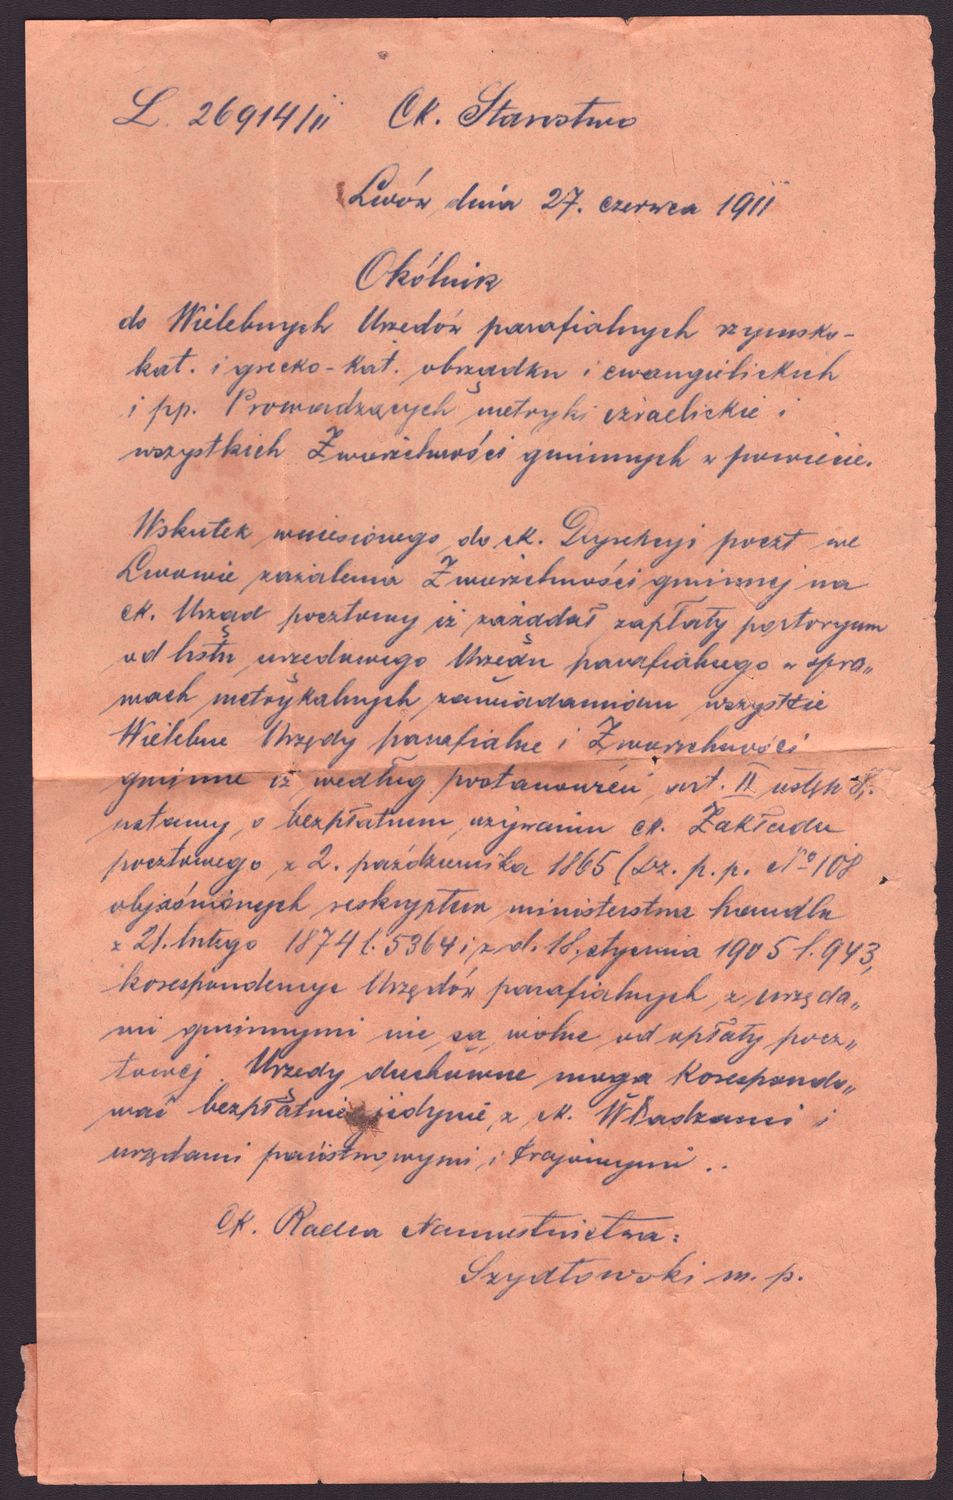 L. 26914/II Ck. Starostwo
Lwów, dnia 27. czerwca 1911
Okólnik
do Wielebnych Urzedów parafialnych rzymsko-
kat. i grecko-kat. obrządku i ewangielickich
i pp. Prowadzących metryki izraelickie i
wszystkich Zwierzchności gminnych w powiecie.
Wskutek wniesionego do ck. Dyrekcyi poczt we
Lwowie zażalenia Zwierzchności gminnej na
ck. Urząd pocztowy iż zażądał zapłaty portoryum
od listu urzędowego Urzędu parafialnego w spra„
wach metrykalnych zawiadamiam wszystkie
Wielebne Urzędy parafialne i Zwierzchności
gminne iż według postanowień art. II ustęp
ustawy o bezpłatnem używaniu ck. Zakładu
pocztowego z 2. października 1865 (Dz. p. p. No 108
objaśnionych reskryptem ministerstwa handlu
z 21. lutego 1874 l. 5364 i z d. 18. stycznia 1905 l. 943,
korespondencye Urzędów parafialnych z urzęda„
mi gminnymi nie są wolne od opłaty pocz„
towej. Urzędy duchowne mogą korespondo„
wać bezpłatnie jedynie z ck. Władzami i
urzędami państwowymi i krajowymi ..
Ck. Radca Namiestnictwa:
Szydłowski m. p.